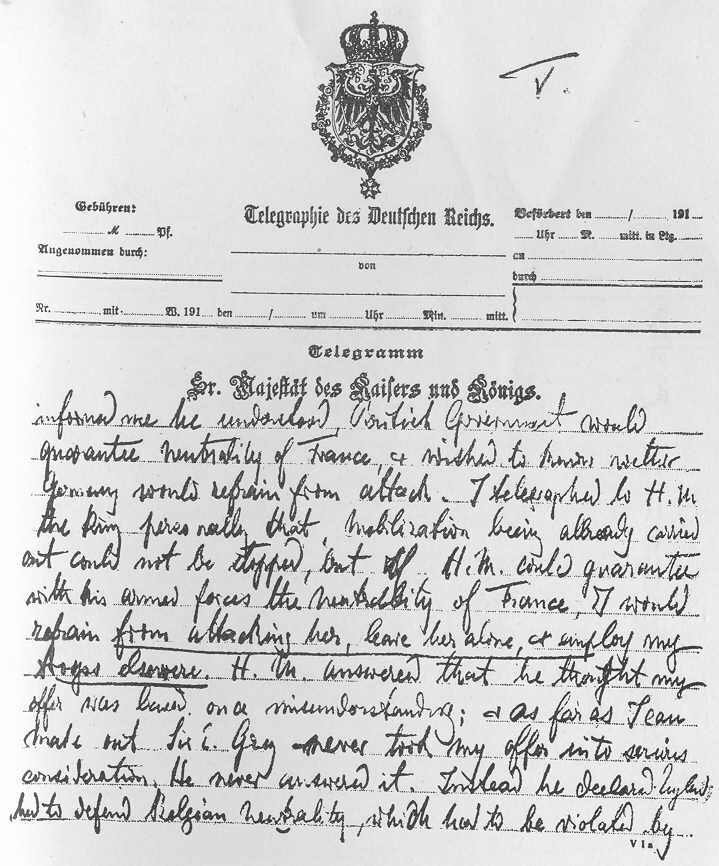 V.
Gebühren:
M Pf.
Angenommen durch:
Telegraphie des Deutschen Reichs.
von
Befördert den / 191
Uhr M. mitt. in Ltg.
an
durch
Nr. mit W. 191 den / um Uhr Min. mitt.
Telegramm
Sr. Majestät des Kaisers und Königs.
informed me he understood, British Government would
guarantee neutrality of France, & wished to know wether
Germany would refrain from attack. I telegraphed to H.M.
the King personally that, mobilization being allready carried
out could not be stopped, but if H.M. could guarantee
with his armed forces the neutrality of France, I would
refrain from attacking her, leave her alone, & employ my
troops elsewere. H. M. answered that he thought my
offer was based on a misunderstanding; & as far as I can
make out Sir E. Grey never took my offer into serious
consideration. He never answered it. Instead he declared England
had to defend Belgian neutrality, which had to be violated by
V 1a